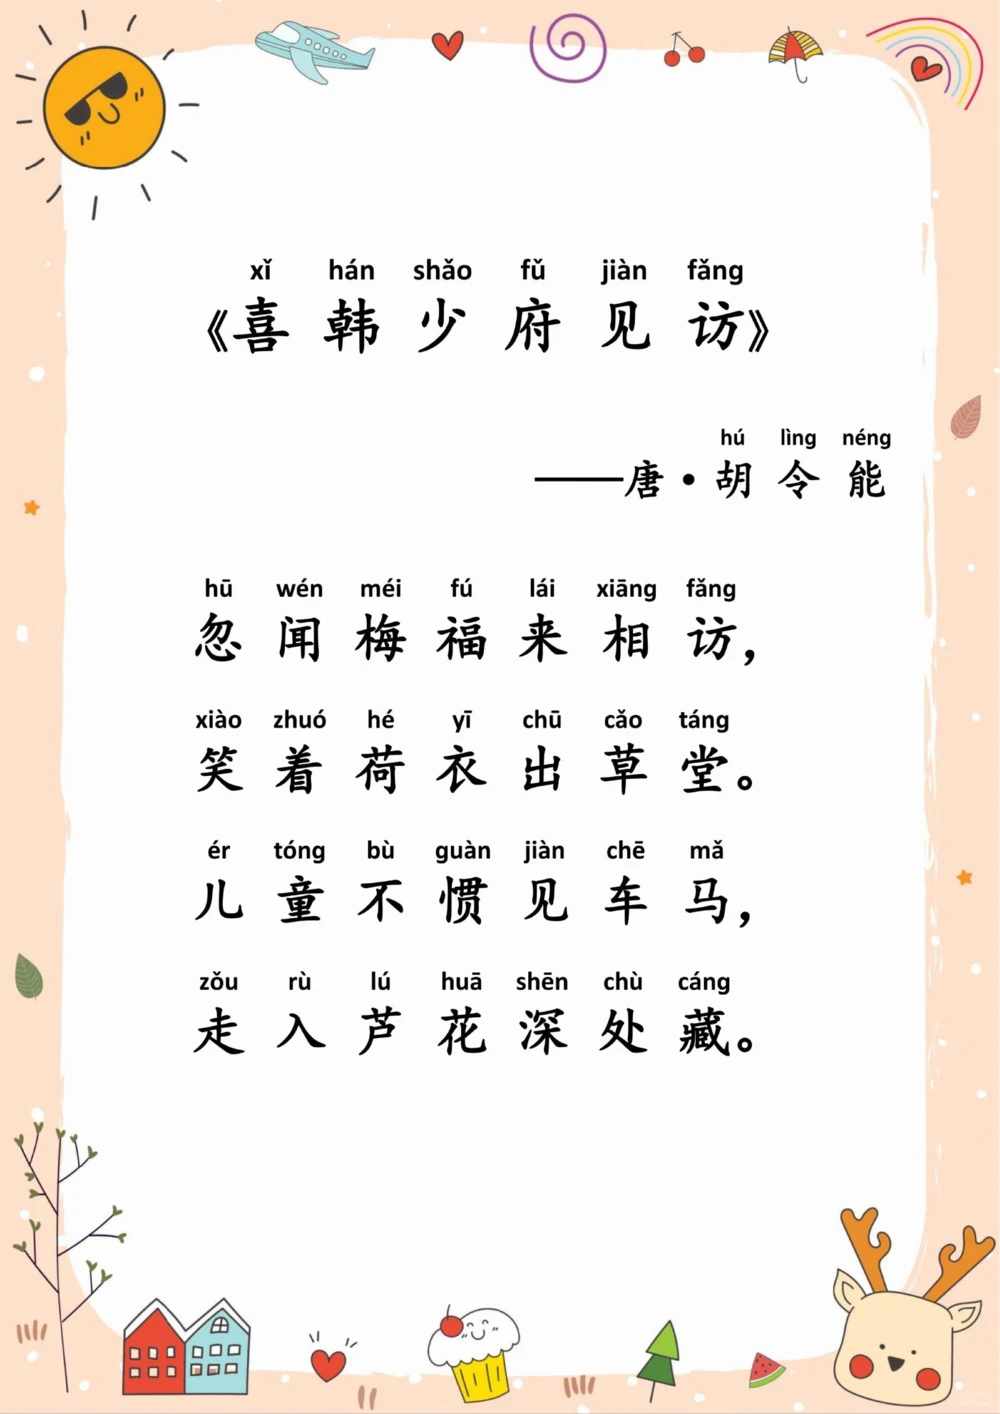 xǐ hán shǎo fǔ jiàn fǎng
《喜韩少府见访》
hú lìng néng
——唐·胡令能
hū wén méi fú lái xiāng fǎng
忽闻梅福来相访，
xiào zhuó hé yī chū cǎo táng
笑着荷衣出草堂。
ér tóng bù guàn jiàn chē mǎ
儿童不惯见车马，
zǒu rù lú huā shēn chù cáng
走入芦花深处藏。